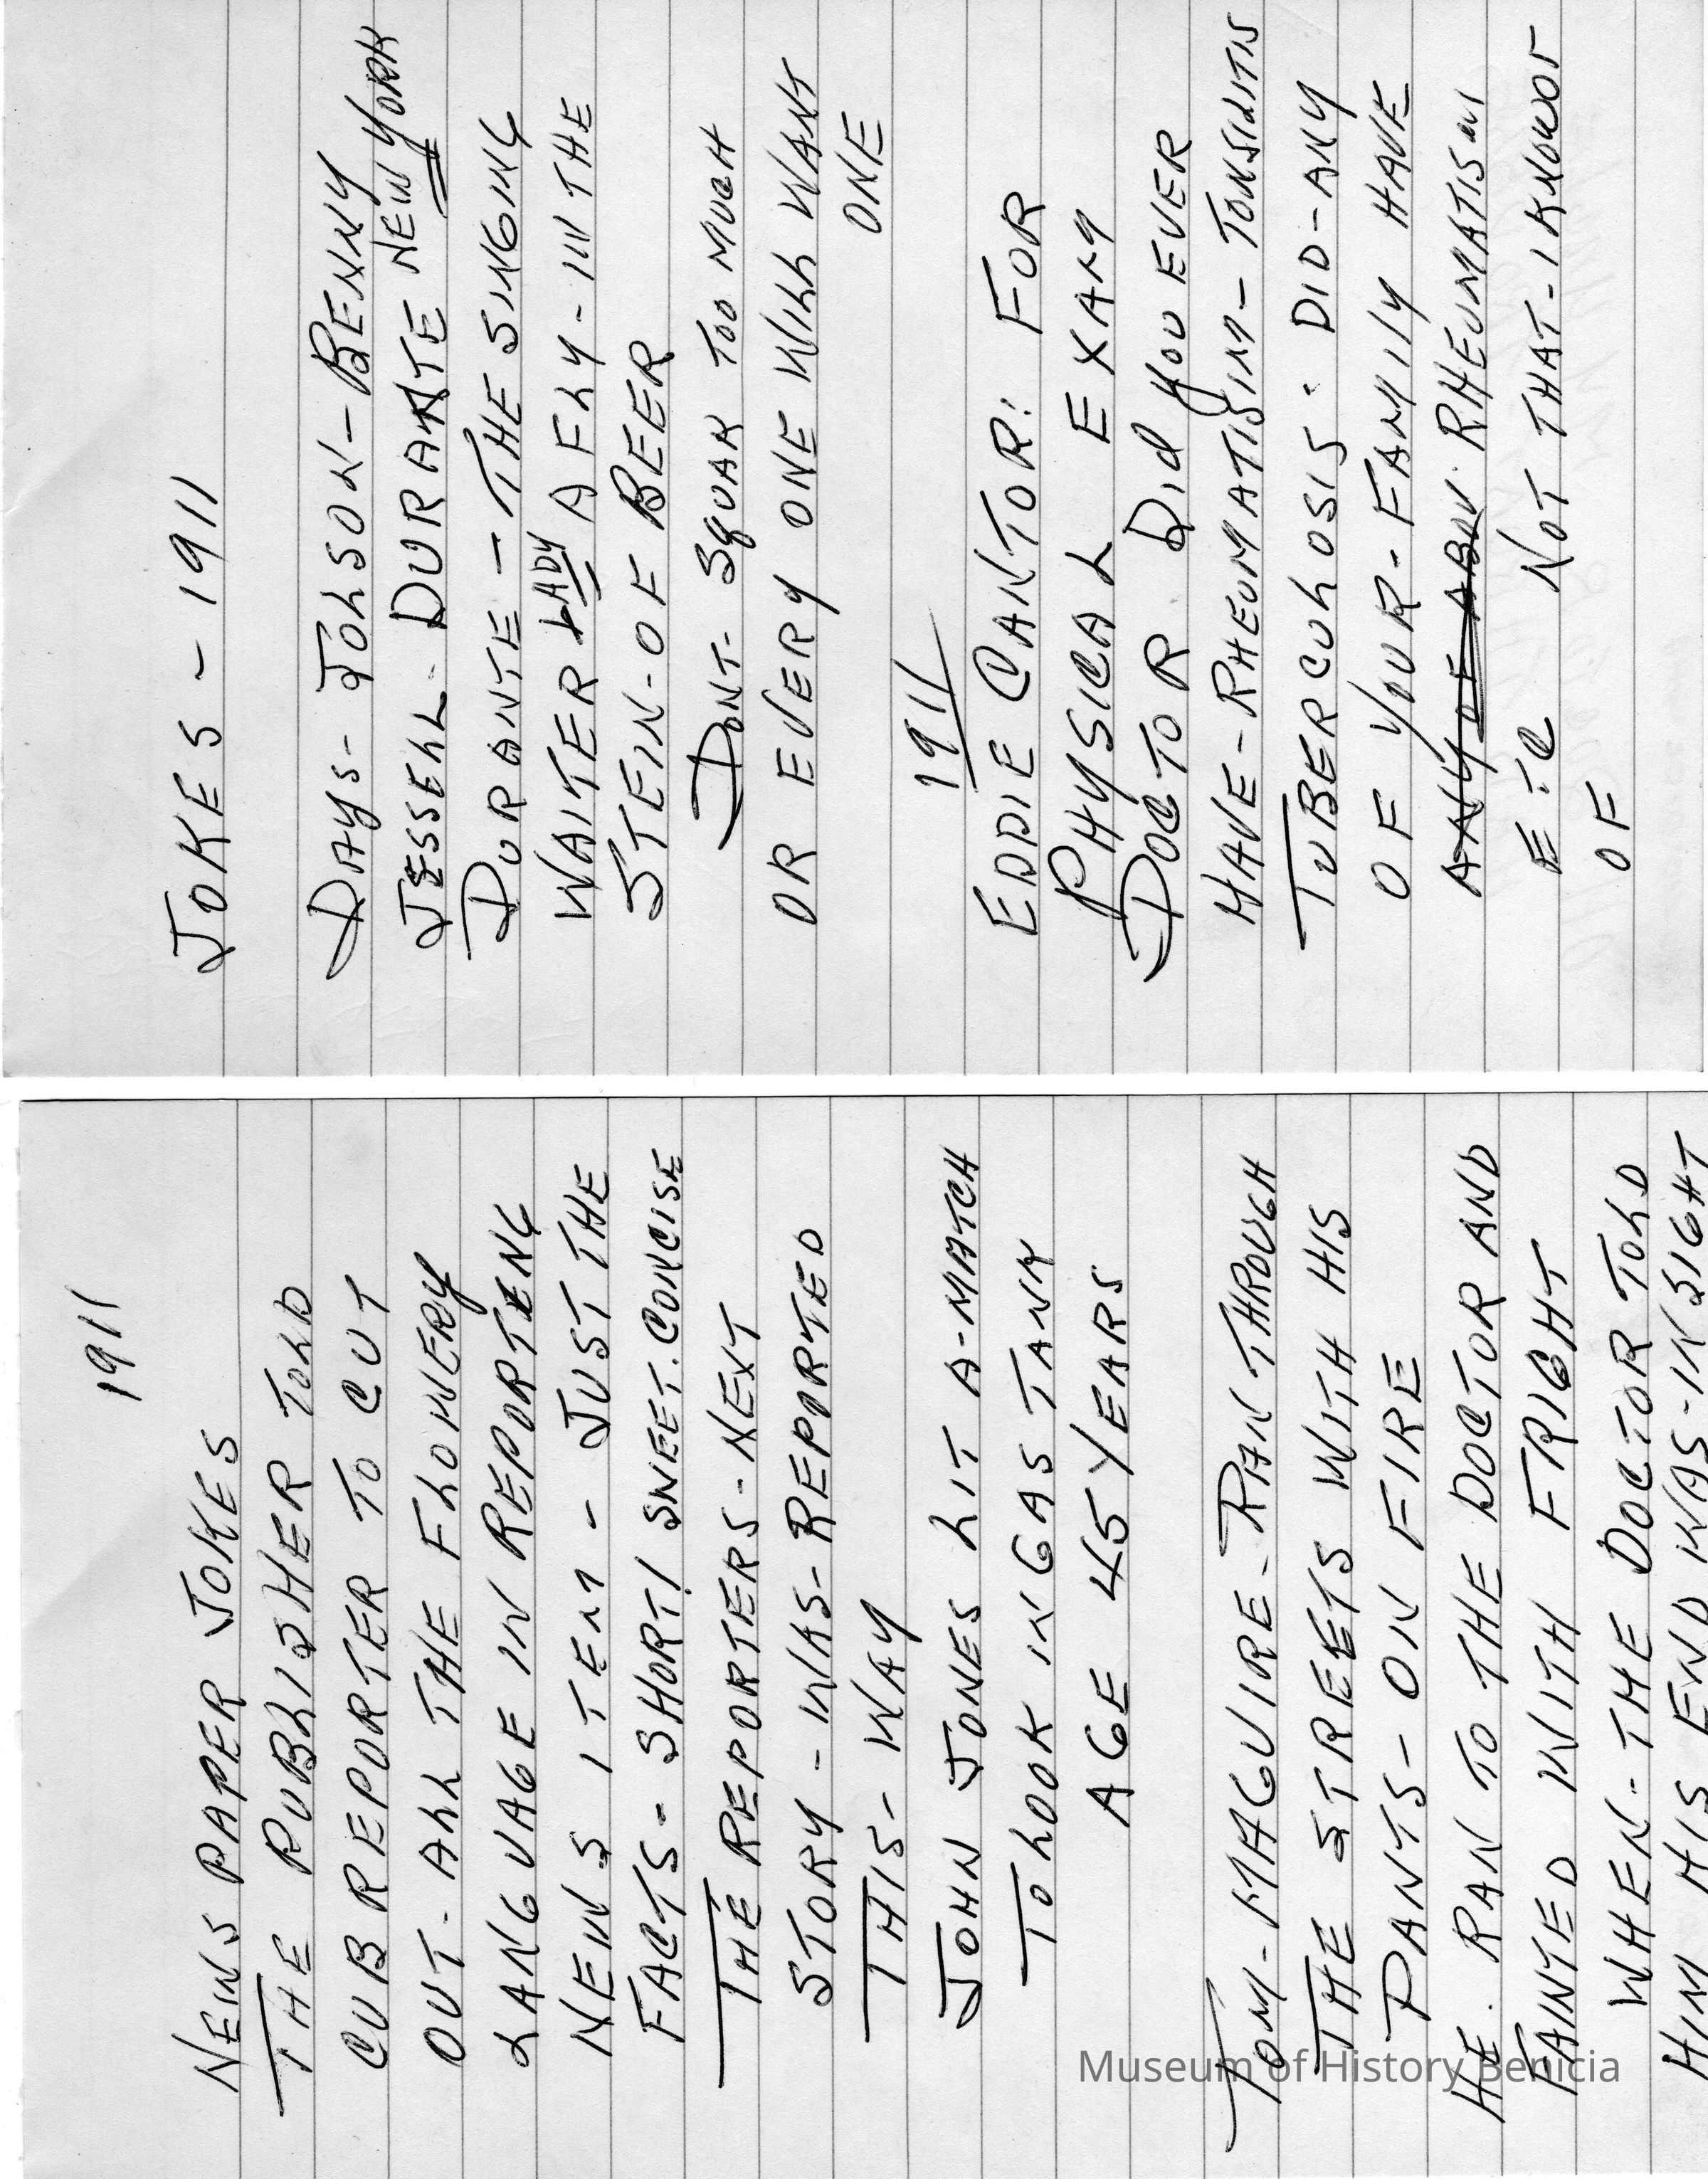 JOKES - 1911
DAYS - JOLSON - BENNY
JESSELL - DURANTE NEW YORK
DURANTE - THE SINGING
WAITER LADY A FLY - IN THE
STEIN - OF BEER
DONT - SQUAK TOO MUCH
OR EVERY ONE WILL WANT
ONE
1911
EDDIE CANTOR: FOR
PHYSICAL EXAM
DOCTOR Did you EVER
HAVE - RHEUMATISIM - TONSILITIS
TUBERCULOSIS. DID - ANY
OF YOUR - FAMILY HAVE
RHEUMATISM
ETC NOT THAT - I KNOW
OF
1911
NEWS PAPER JOKES
THE PUBLISHER TOLD
CUB REPORTER TO CUT
OUT - ALL THE FLOWERY
LANGUAGE IN REPORTING
NEWS ITEM - JUST THE
FACTS - SHORT! SWEET. CONCISE
THE REPORTERS - NEXT
STORY - WAS - REPORTED
THIS - WAY
JOHN JONES LIT A - MATCH
TO LOOK IN GAS TANK
AGE 45 YEARS
TOM - MAGUIRE - RAN THROUGH
THE STREETS WITH HIS
PANTS - ON FIRE
HE. RAN TO THE DOCTOR AND
FAINTED WITH FRIGHT
WHEN - THE DOCTOR TOLD
HIM HIS END WAS - IN SIGHT
Museum of History Benicia